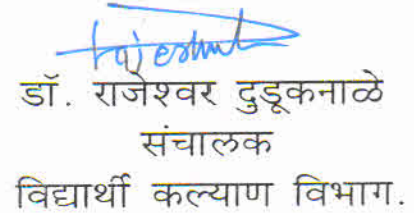 डॉ. राजेश्वर दुडूकनाळे
संचालक
विद्यार्थी कल्याण विभाग.